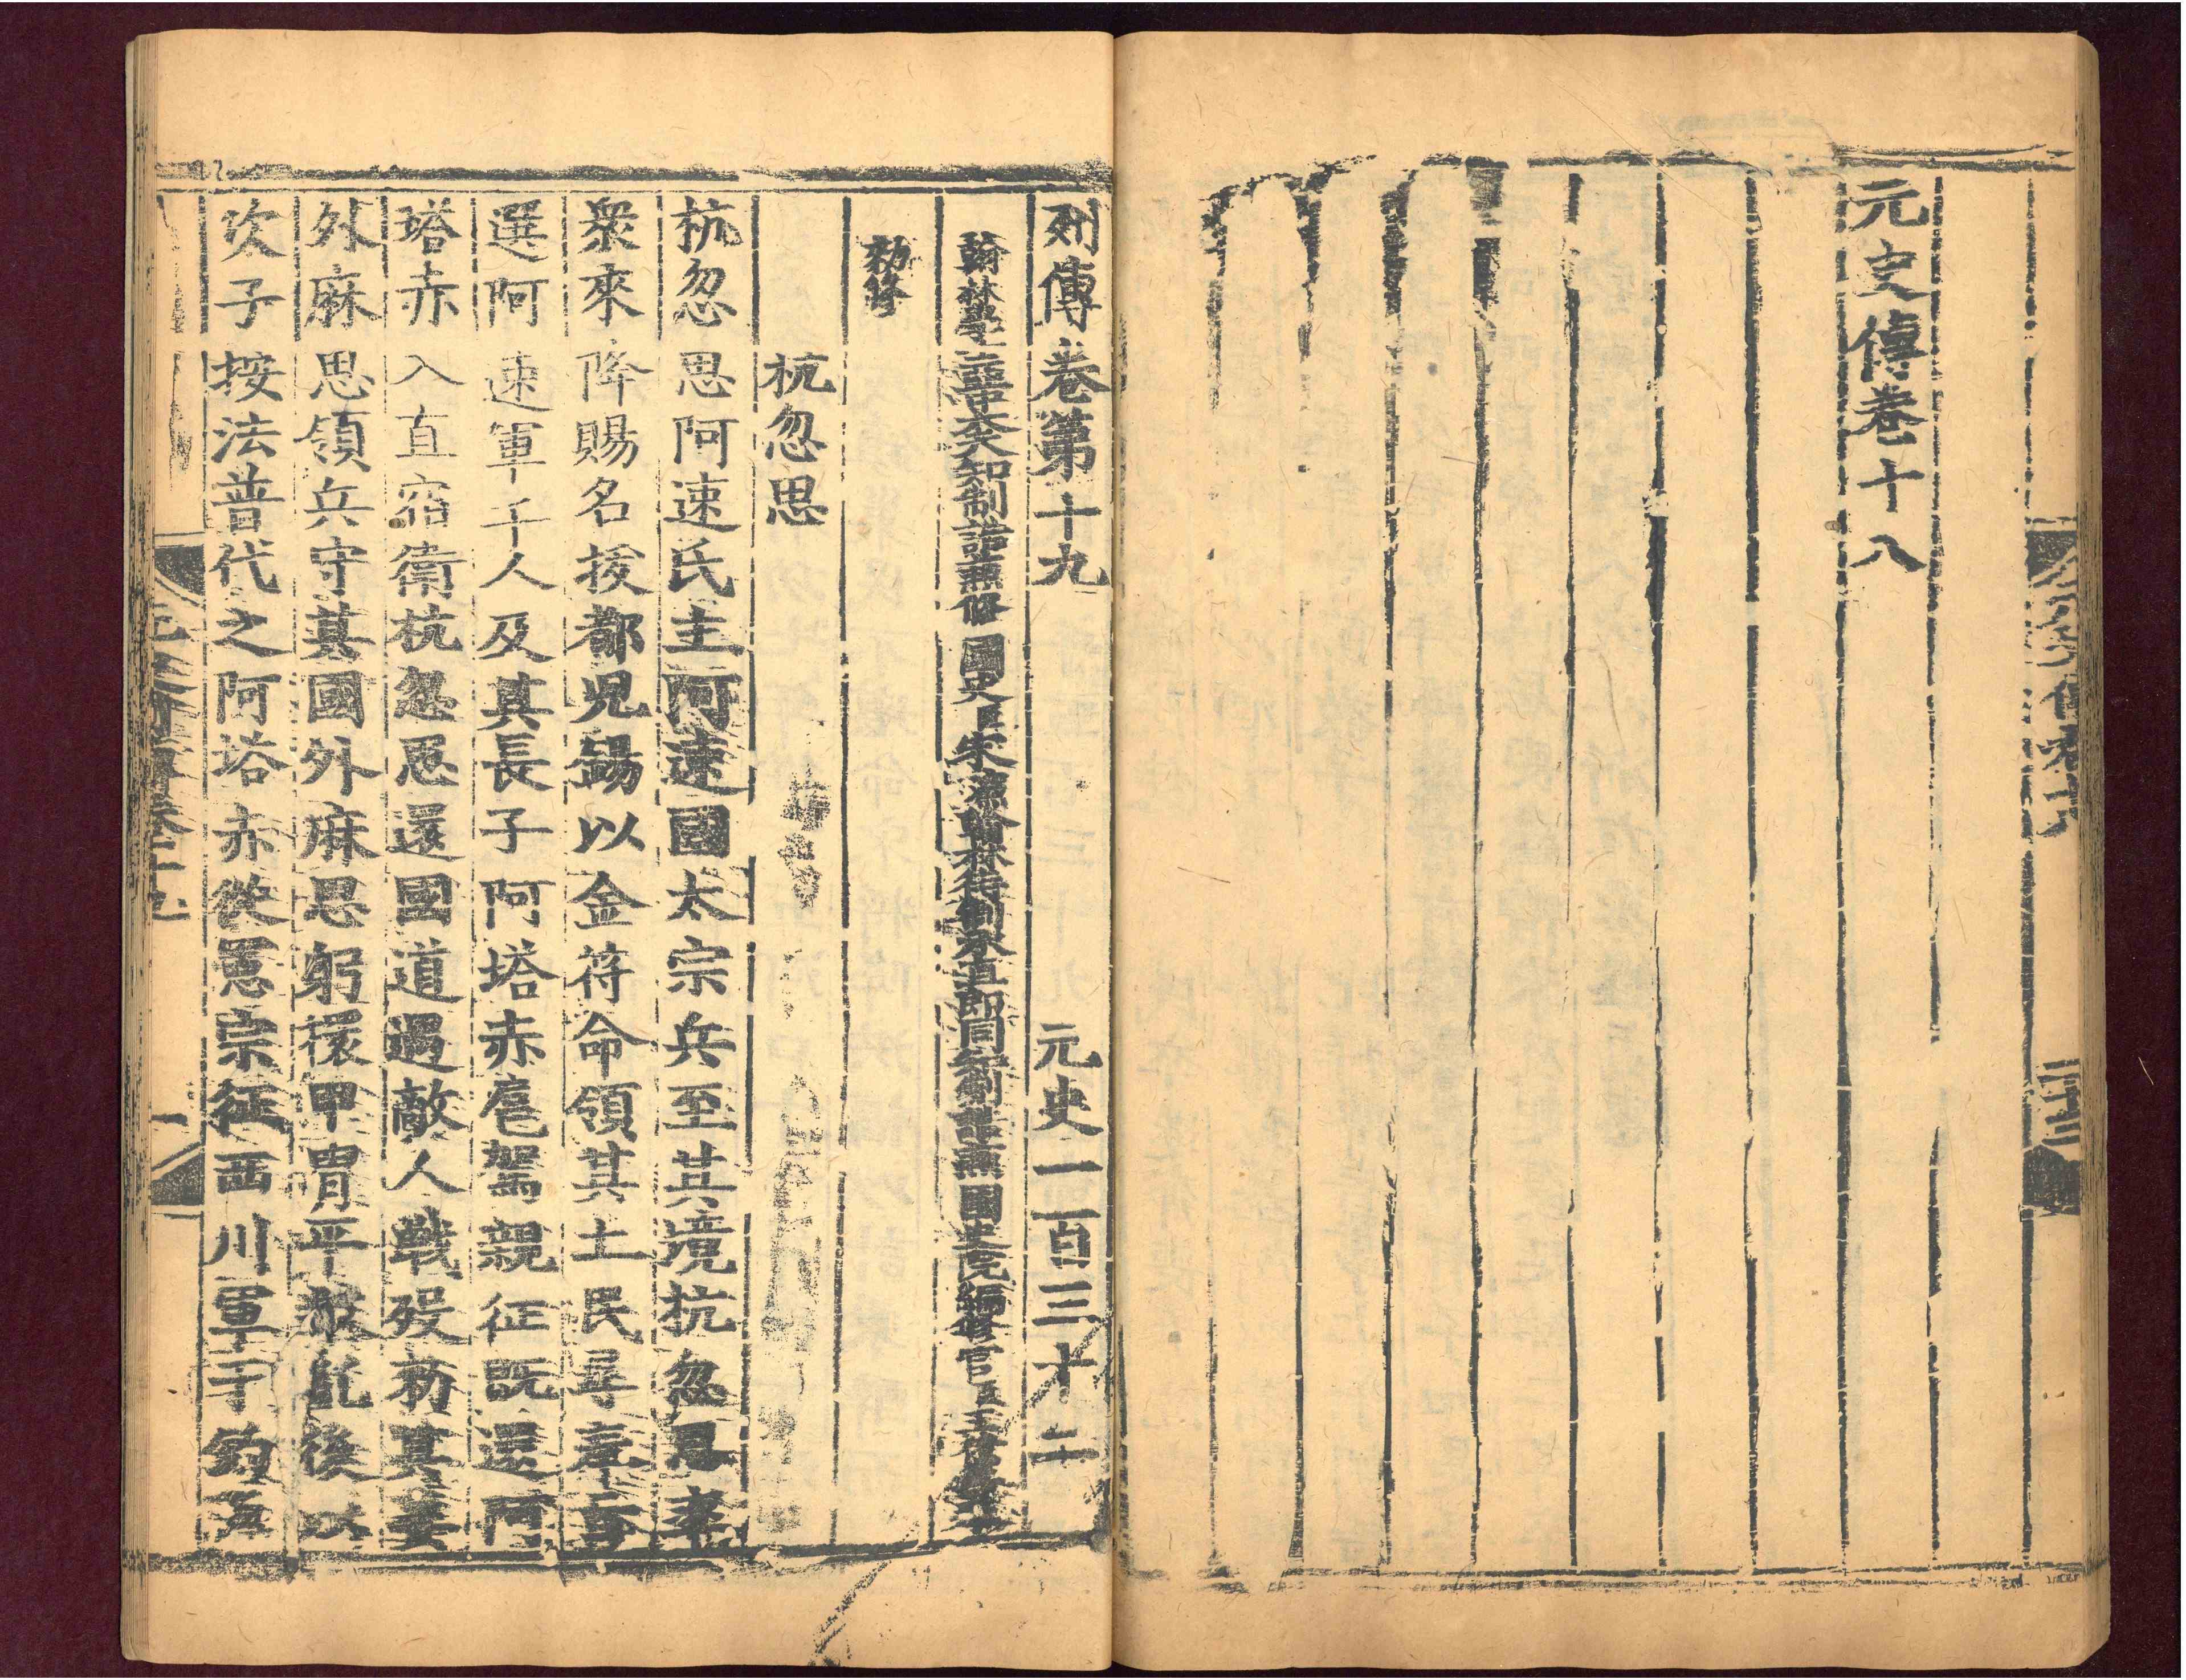 元史傳卷十八
列傳卷第十九 元史一百三十二
翰林學士亞中大夫知制誥兼修國史臣宋濂翰林待制承直郎同知制誥兼國史院編修官臣王禕等奉
勑修
杭忽思
杭忽思阿速氏主阿速國太宗兵至其境杭忽思率
衆來降賜名拔都兒錫以金符命領其土民尋奉旨
選阿速軍千人及其長子阿塔赤扈駕親征既還阿
塔赤入直宿衛杭忽思還國道遇敵人戰歿勑其妻
外麻思領兵守其國外麻思躬擐甲冑平叛亂後以
次子按法普代之阿塔赤從憲宗征西川軍于釣魚
元史列傳卷十九 一